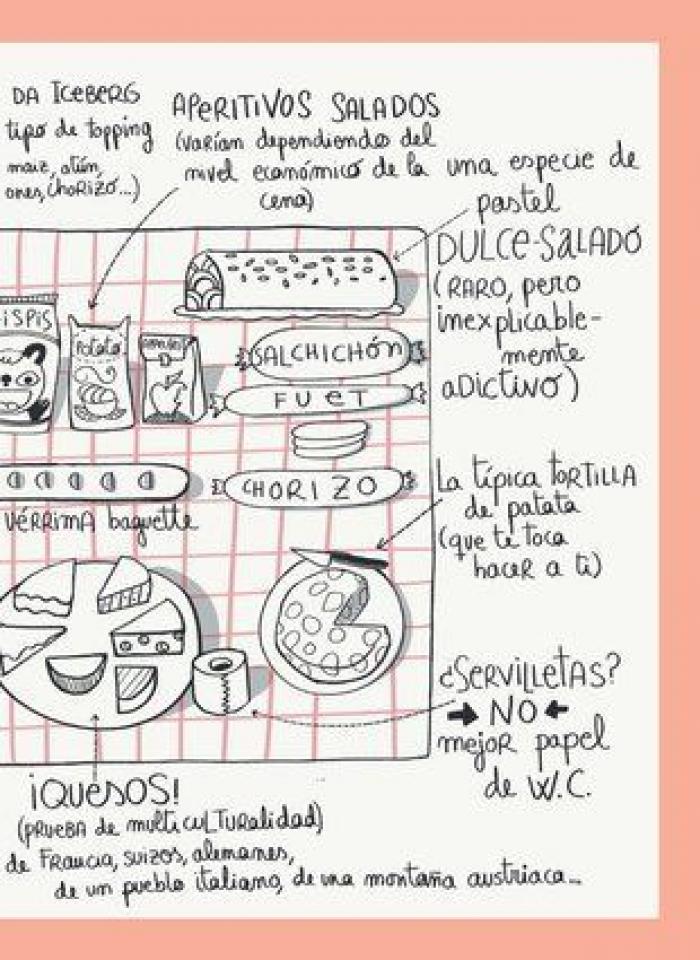 DA ICEBERG
tipo de topping
maiz, atún,
ones, CHORIZO...)
APERITIVOS SALADOS
(varían dependiendo del
nivel económico de la
cena)
una especie de
pastel
DULCE-SALADO
(RARO, pero
inexplicable-
mente
aDictivo)
iSPiS
Potato
SALCHICHÓN
FUET
CHORIZO
VÉRRIMA baguette
La típica TORTILLA
de patata
(que te toca
hacer a ti)
¿SERVILLETAS?
NO
mejor papel
de W.C.
¡QUESOS!
(PRUEBA de multiculturalidad)
de Francia, suizos, alemanes,
de un pueblo italiano, de una montaña austriaca...